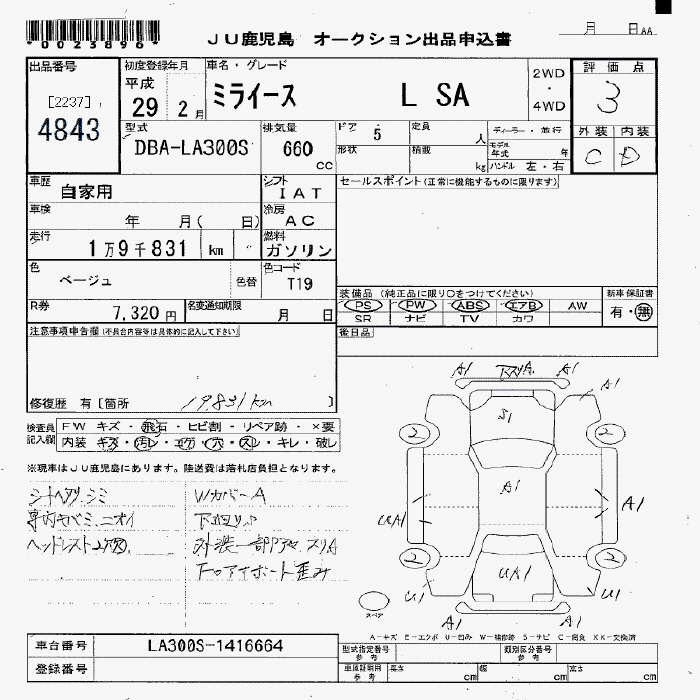 *0023896* JU鹿児島 オークション出品申込書 月 日 AA
出品番号 初度登録年月 車名・グレード 2WD 評価点
[2237] 平成 ミライース L SA ・ 3
4843 29 2月 4WD
型式 排気量 ドア 5 定員 人 ディーラー・並行 外装 内装
DBA-LA300S 660 cc 形状 積載 kg モデル年式 年 C D
ハンドル 左・右
車歴 自家用 シフト IAT セールスポイント(正常に機能するものに限ります)
車検 年 月( 日) 冷房 AC
走行 1万9千831 km 燃料 ガソリン
色 ベージュ 色替 色コード T19
装備品(純正品に限り〇をつけてください) 新車保証書
R券 7,320円 名変通知期限 月 日 PS PW ABS エアB AW 有・無
SR ナビ TV カワ
注意事項申告欄(不具合内容等は具体的に記入して下さい) 後日品
修復歴 有[箇所 19,831km ]
検査員記入欄 FW キズ・飛石・ヒビ割・リペア跡・×要
内装 キズ・汚レ・エグレ・穴・スレ・キレ・破レ
※現車はJU鹿児島にあります。陸送費は落札店負担となります。
A1 A1 A1
S1
2 2
A1
UA1 A1
2 2
UA1
U1 U1
A1 A1
スペア
シートヘタリ、シミ Wカバー A
ヘッドレスト
A-キズ E-エクボ U-凹み W-補修跡 S-サビ C-腐食 XX-交換済
車台番号 LA300S-1416664 型式指定番号 参考 類別区分番号 参考
登録番号 車庫証明用 参考 長さ cm 幅 cm 高さ cm